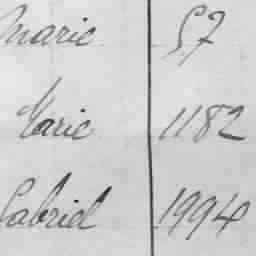 Marie 57
Marie 1182
Gabriel 1994